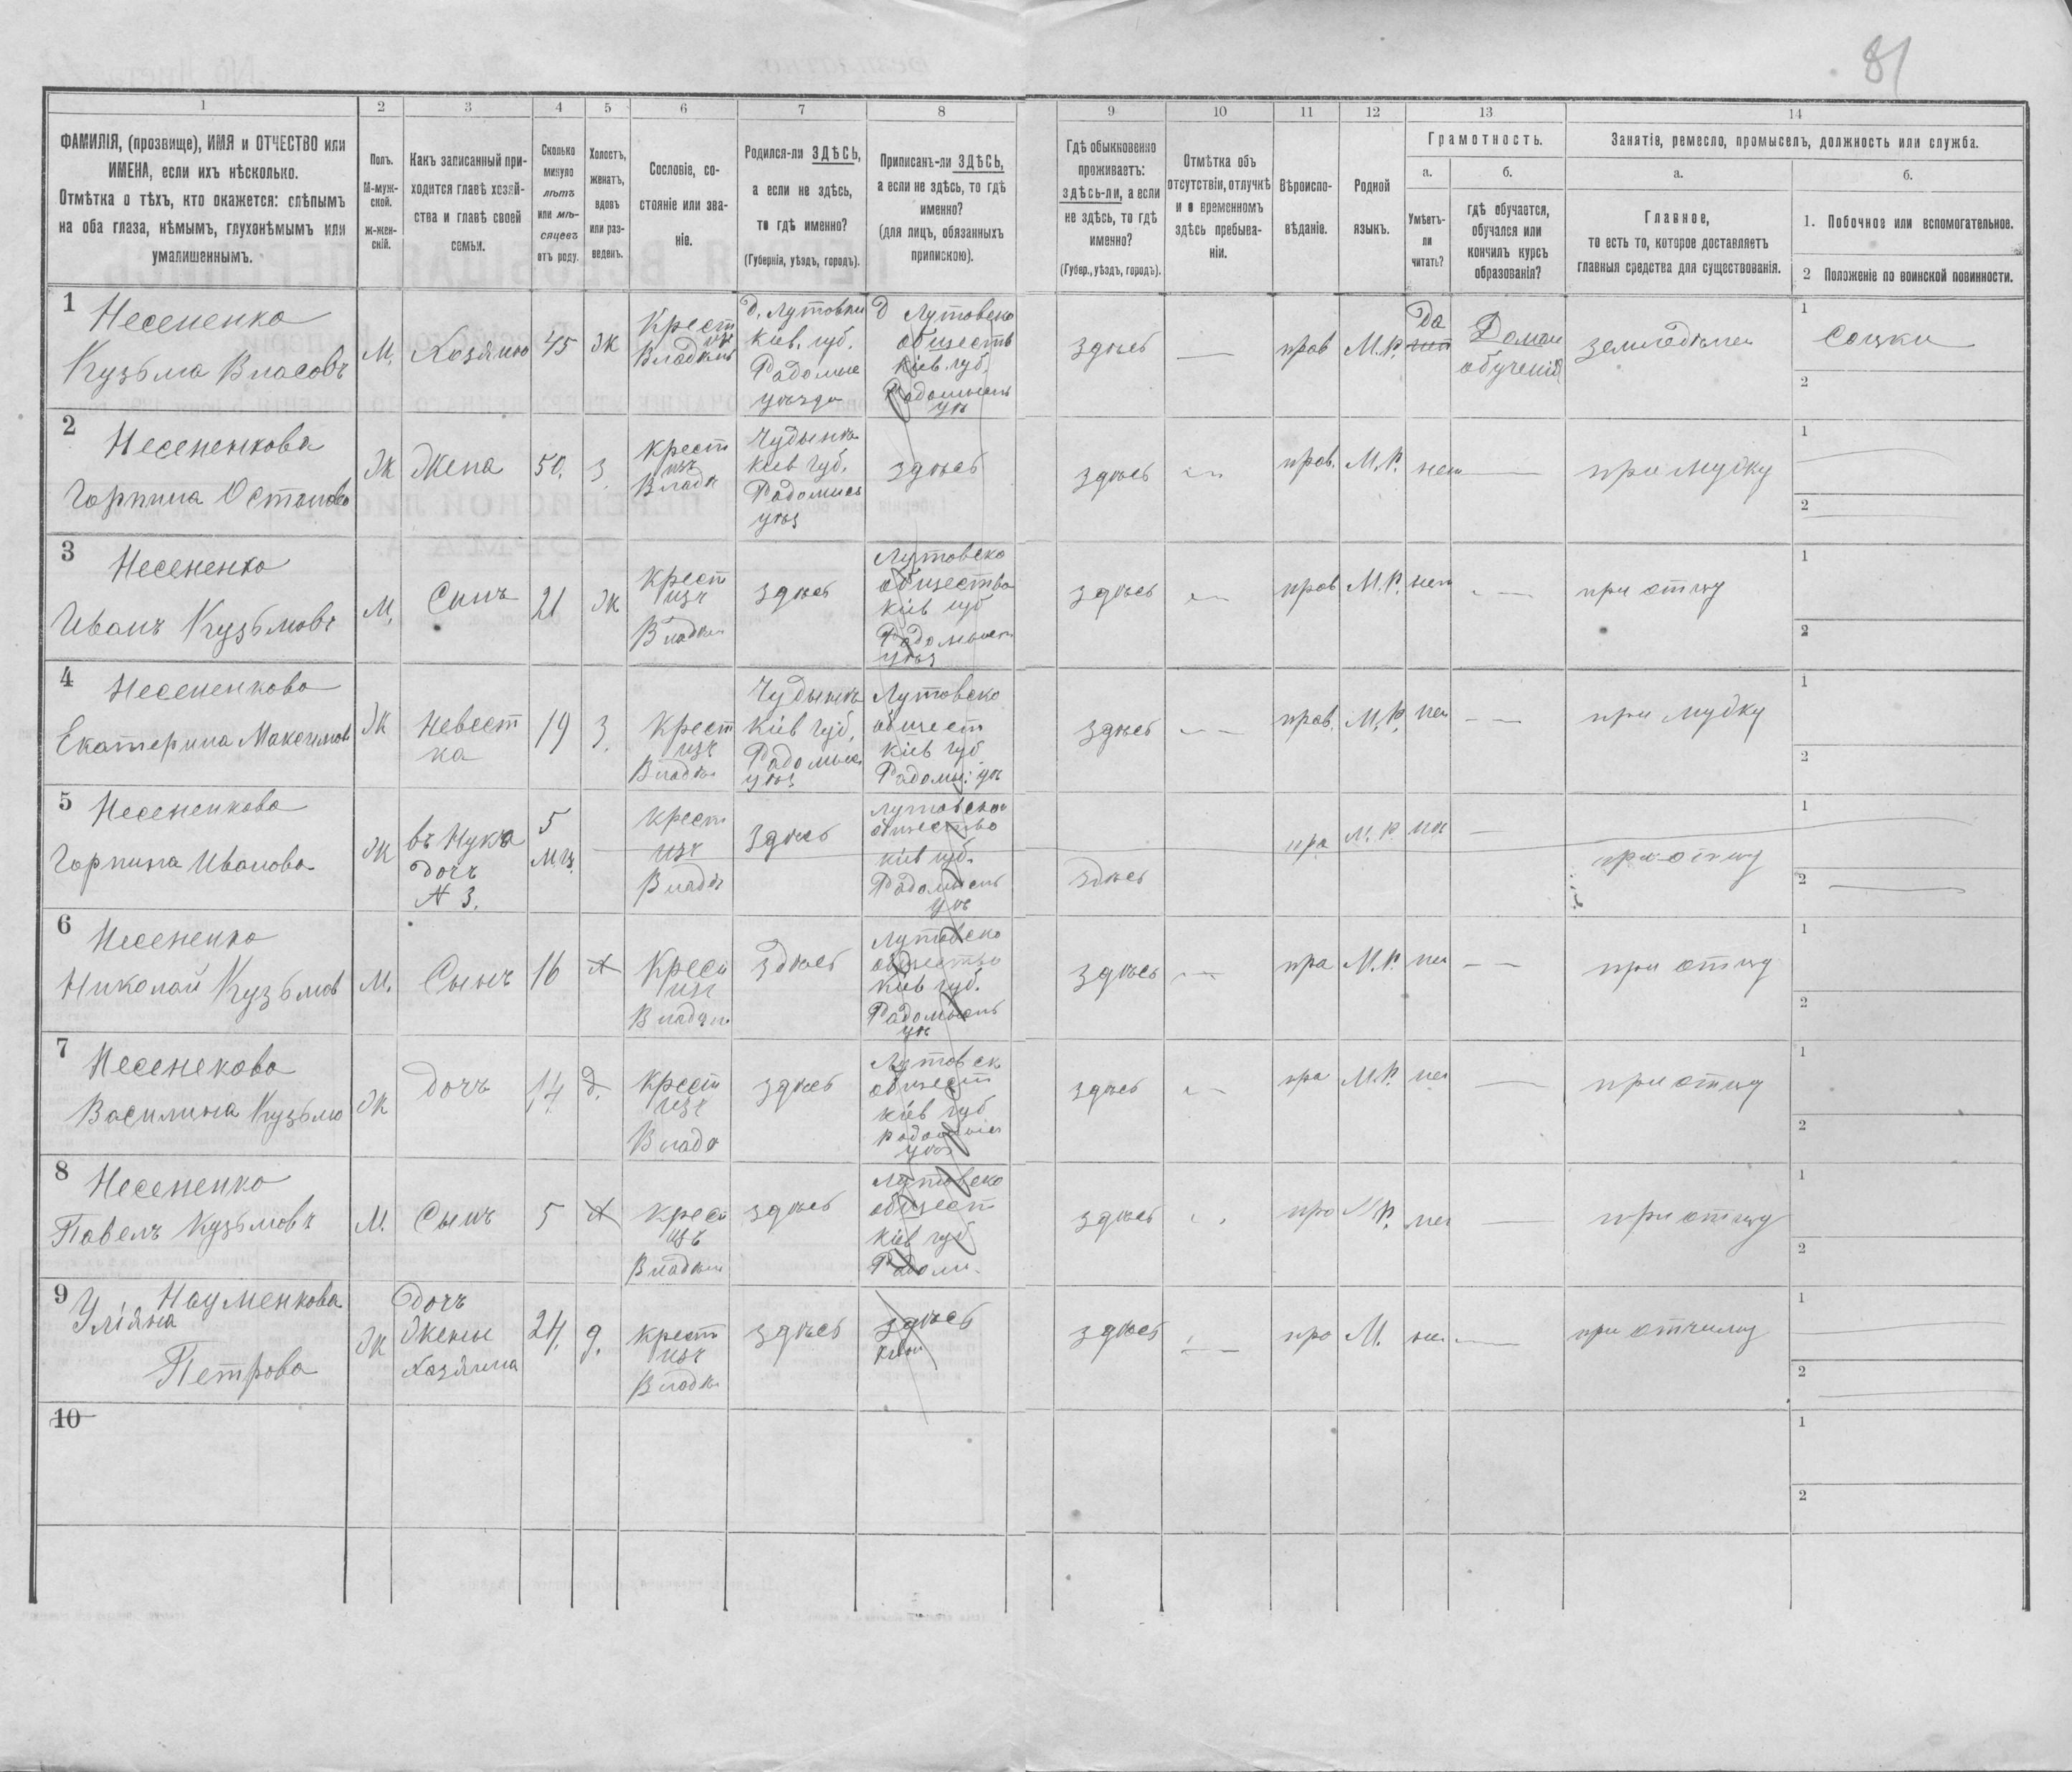 81
1 2 3 4 5 6 7 8 9 10 11 12 13 14
ФАМИЛІЯ, (прозвище), ИМЯ и ОТЧЕСТВО или
ИМЕНА, если ихъ нѣсколько.
Отмѣтка о тѣхъ, кто окажется: слѣпымъ
на оба глаза, нѣмымъ, глухонѣмымъ или
умалишеннымъ.
Полъ.
М-муж-
ской.
Ж-жен-
скій.
Какъ записанный при-
ходится главѣ хозяй-
ства и главѣ своей
семьи.
Сколько
минуло
лѣтъ
или мѣ-
сяцевъ
отъ роду.
Холостъ,
женатъ,
вдовъ
или раз-
веденъ.
Сословіе, со-
стояніе или зва-
ніе.
Родился-ли ЗДѢСЬ,
а если не здѣсь,
то гдѣ именно?
(Губернія, уѣздъ, городъ).
Приписанъ-ли ЗДѢСЬ,
а если не здѣсь, то гдѣ
именно?
(для лицъ, обязанныхъ
припискою).
Гдѣ обыкновенно
проживаетъ:
здѣсь-ли, а если
не здѣсь, то гдѣ
именно?
(Губер., уѣздъ, городъ).
Отмѣтка объ
отсутствіи, отлучкѣ
и о временномъ
здѣсь пребыва-
ніи.
Вѣроиспо-
вѣданіе.
Родной
языкъ.
Грамотность.
а.
Умѣетъ-
ли
читать?
б.
гдѣ обучается,
обучался или
кончилъ курсъ
образованія?
Занятіе, ремесло, промыселъ, должность или служба.
а.
Главное,
то есть то, которое доставляетъ
главныя средства для существованія.
б.
1. Побочное или вспомогательное.
2 Положеніе по воинской повинности.
1
Несененко
Кузьма Власовъ
М.
Хозяино
45
Ж
Крест
изъ
Владѣль
д. Лутовки
Кіев. губ.
Радомыс
уѣзда
д Лутовско
обществ
Кіев. губ.
Радомысль
уѣ
здѣсь
—
прав
М.Р.
Да
нет
Домаш
обученія
земледѣлец
1
Соцки
2
2
Несененкова
Горпина Остапова
Ж
Жена
50.
З.
Крест
изъ
Владѣ
Чудынъ
Кіев губ.
Радомысь
уѣз
здѣсь
здѣсь
прав.
М.Р.
нет
—
при мужу
1
2
3
Несененко
Иванъ Кузьмовъ
М.
Сынъ
21
Ж
Крест
изъ
Владѣл
здѣсь
Лутовско
общество
Кіев губ
Радомысл
уѣз
здѣсь
прав
М.Р.
нет
—
при отцу
1
2
4
Несененкова
Екатерина Максимов
Ж
Невест
ка
19
З.
Крест
изъ
Владѣл
Чудынъ
Кіев губ.
Радомысл
уѣз
Лутовско
общест
Кіев губ
Радомы: уѣ
здѣсь
прав.
М.Р.
нет
при мужу
1
2
5
Несененкова
Горпина Иванова
Ж
въ Нука
дочъ
N 3.
5
М.ц.
—
Крест
изъ
Владѣ
здѣсь
Лутовско
общество
Кіев губ.
Радомысль
уѣ
здѣсь
пра
М.Р.
нет
—
при отцу
1
2
6
Несененко
Николай Кузьмов
М.
Сынъ
16
Х
Крест
изъ
Владѣл
здѣсь
Лутовско
общество
Кіев губ.
Радомысль
уѣ
здѣсь
пра
М.Р.
нет
при отцу
1
2
7
Несенекова
Василина Кузьмо
Ж
дочъ
14.
д.
Крест
изъ
Владѣ
здѣсь
Лутовск
общест
Кіев губ
Радомысл
уѣз
здѣсь
пра
М.Р.
нет
—
при отцу
1
2
8
Несененко
Павелъ Кузьмовъ
М.
Сынъ
5
Х
Крест
изъ
Владѣл
здѣсь
Лутовско
общест
Кіев губ
Радом.
здѣсь
про
М.Р.
нет
—
при отцу
1
2
9
Науменкова
Уліяна
Петрова
Ж
дочъ
Жены
Хозяина
24.
д.
Крест
изъ
Владѣл
здѣсь
здѣсь
здѣсь
про
М.
нет
—
при отчиму
1
2
10
1
2